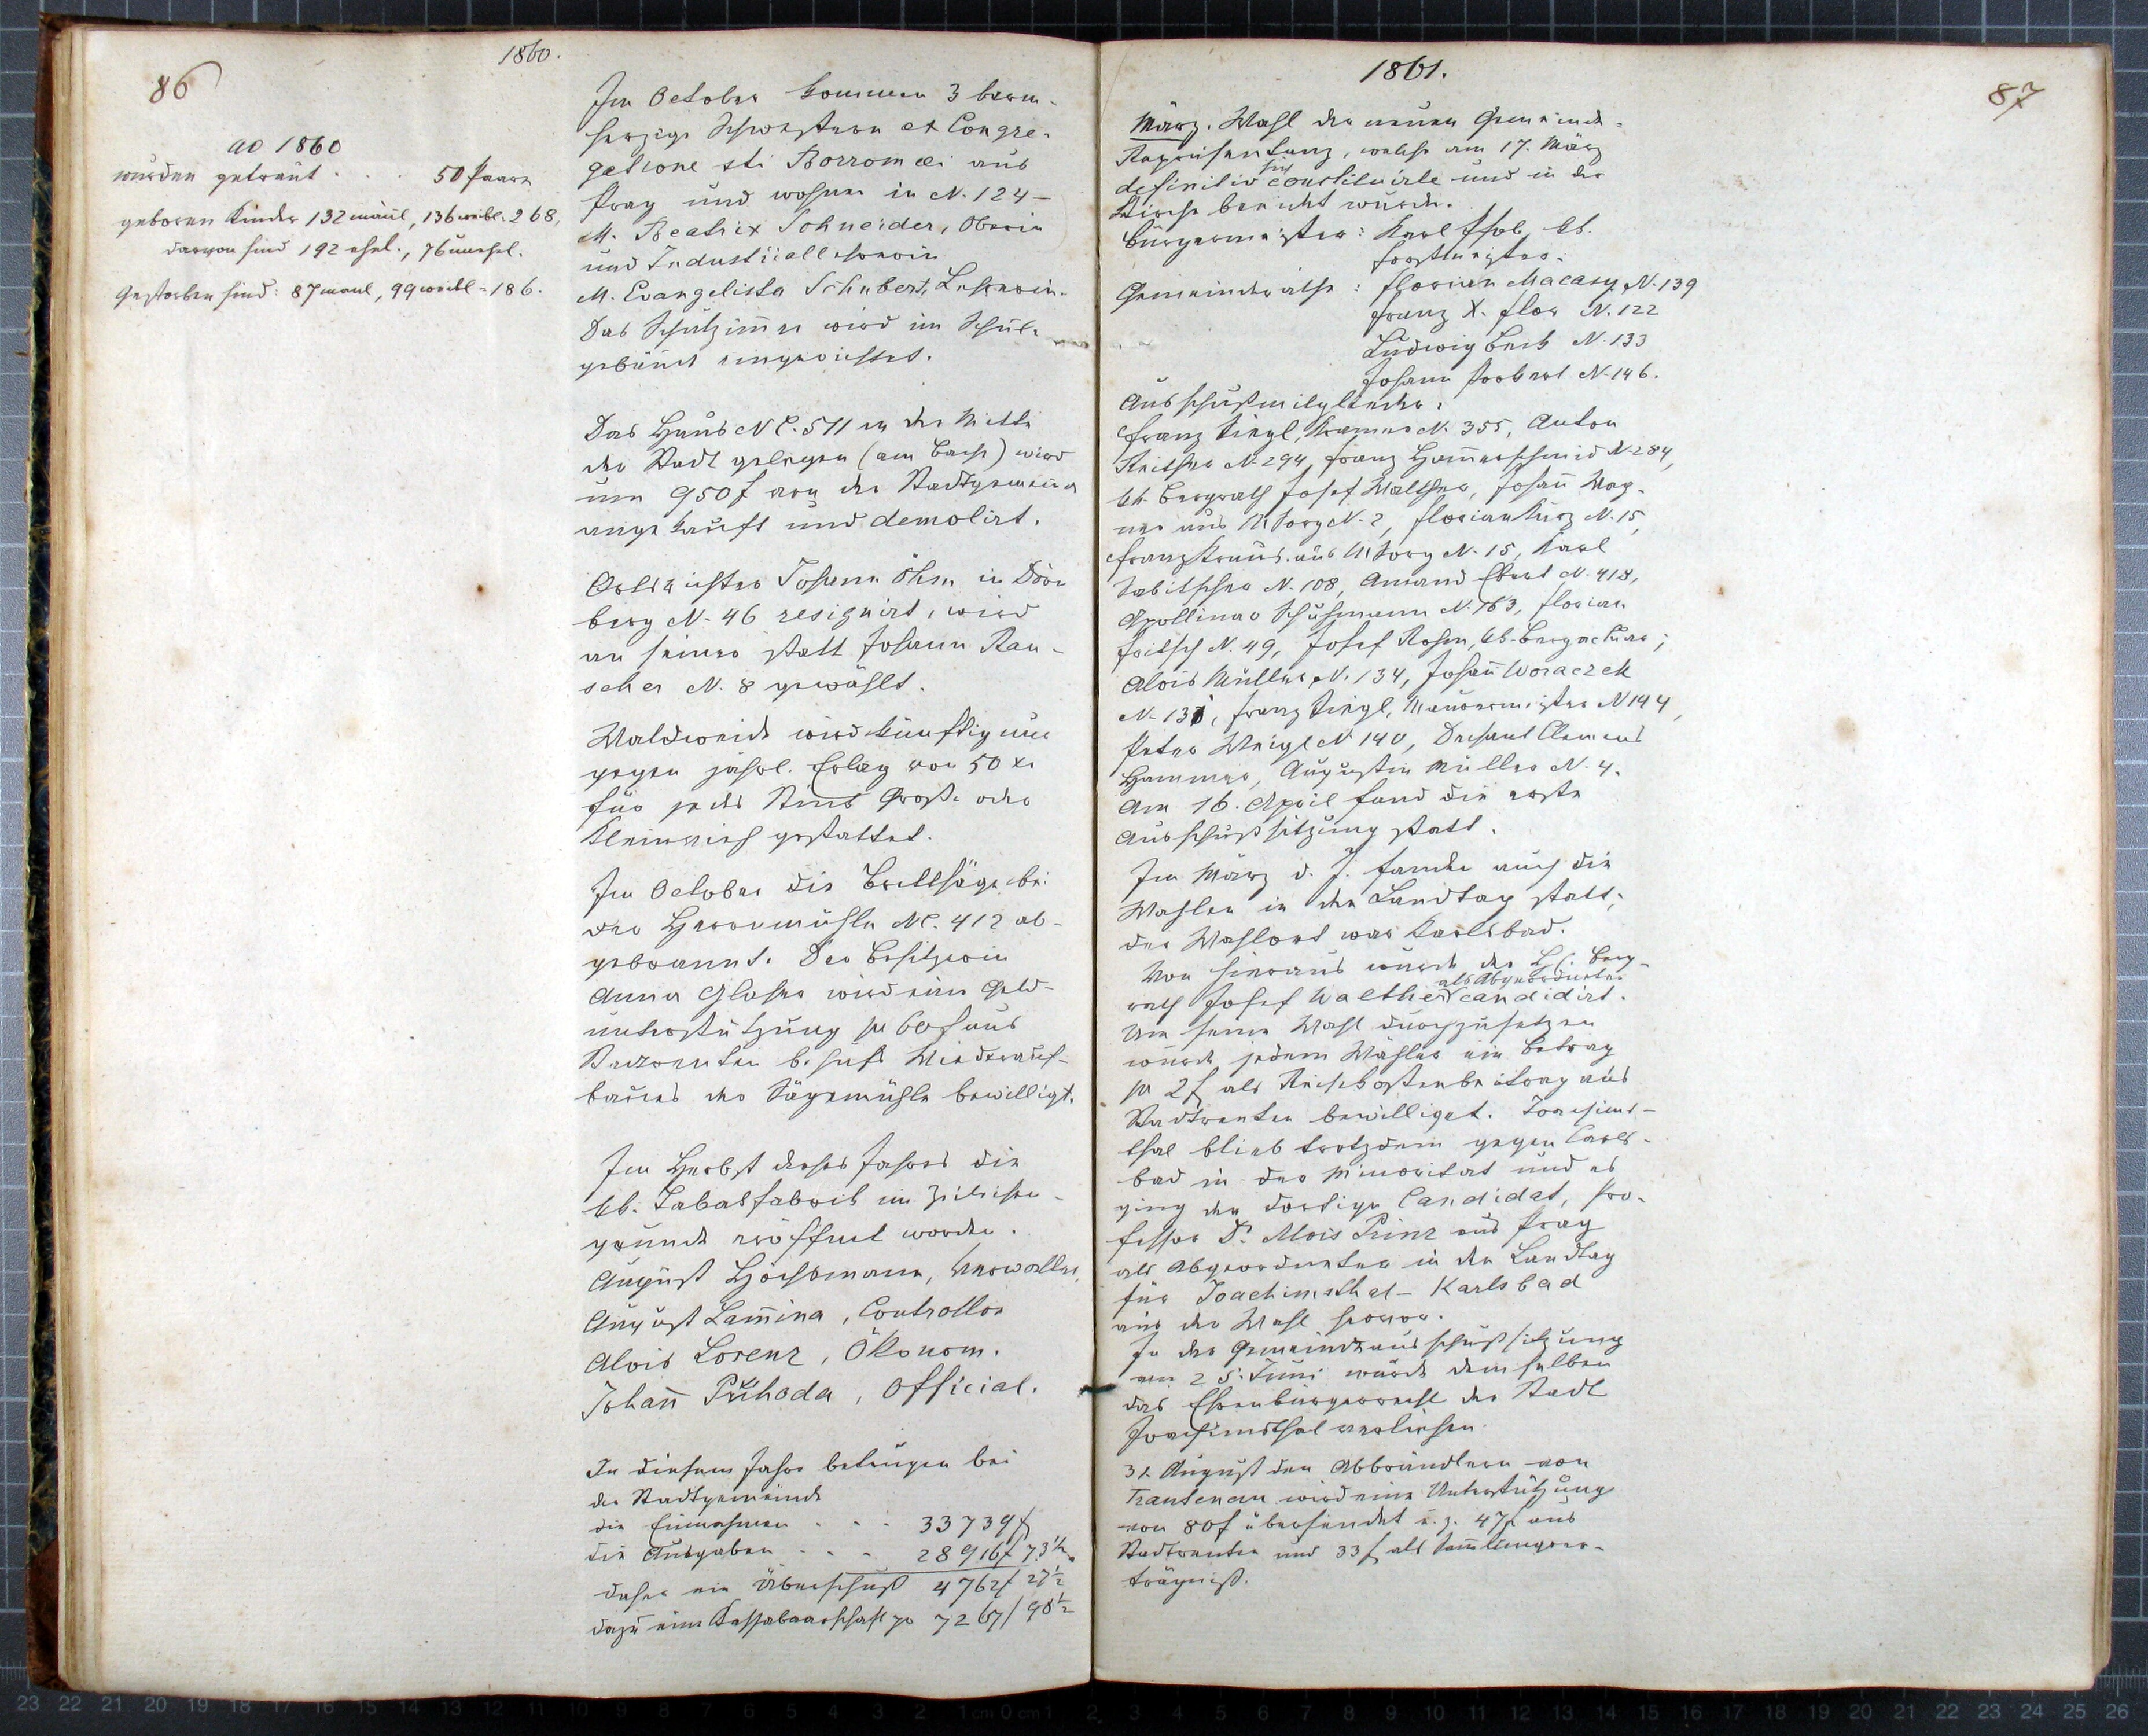 86
1860.
ad 1860
wurden getraut . . . 50 Paare
geboren Kinder 132 mänl, 136 weibl. 268,
davon sind 192 ehel., 76 unehel.
Gestorben sind: 87 manl, 99 weibl = 186.
Im October kommen 3 barm-
herzige Schwestern ex Congre-
gatione sti Borromæi aus
Prag und wohnen in N. 124 –
M. Beatrix Schneider, Oberin
und Industriallehrerin
M. Evangelista Schubert, Lehrerin.
Das Schulzimer wird im Schul-
gebäude eingerichtet.
Das Haus NC. 511 in der Mitte
der Stadt gelegen (am Bache) wird
um 950 f von der Stadtgemeinde
angekauft und demolirt.
Ortsrichter Johann Öhm in Dürn
berg N. 46 resignirt, wird
an seiner statt Johann Rau-
scher N. 8 gewählt.
Waldweide wird künftig nur
gegen jährl. Erlag von 50 xr
für jedes Stück Groß- oder
Kleinvieh gestattet.
Im October die Brettsäge bei
der Herrnmühle NC. 412 ab-
gebrannt. Der Besitzerin
Anna Glaser wird eine Geld-
unterstützung pr 60 f aus
Stadtrenten behufs Wiederauf-
baues der Sägemühle bewilligt.
Im Herbst dieses Jahres die
kk. Tabakfabrik im Zeileisen-
grunde eröffnet worden.
August Höchsmann, Verwalter,
August Lam̅ina, Controllor
Alois Lorenz, Ökonom.
Johan̅ Přihoda, Official.
In diesem Jahre betrugen bei
der Stadtgemeinde
die Einnahmen . . . 33739 f
die Ausgaben . . . 28916 f 73½
daher ein Überschuß 4762 f 27½
dazu eine Kassabaarschaft pr 7267 f 98½
1861.
87
März. Wahl der neuen Gemeinde-
Repräsentanz, welche am 17. März
definitiv sich constituirte und in der
Kirche beeidet wurde.
Bürgermeister: Karl Pfob, kk.
Forstmeister.
Gemeinderäthe: Florian Macasy N. 139
Franz X. Flor N. 122
Ludwig Beck N. 133
Johann Porkert N. 146.
Ausschußmitglieder:
Franz Tingl, Kramer N. 355, Anton
Reitsner N. 294, Franz Ham̅erschmid N. 284,
kk. Bergrath Josef Walther, Johan̅ Wag-
ner aus N. 2, Florian Kurz N. 15,
Franz Kraus. aus N. 15, Karl
Tabitscher N. 108, Amand Ebert N. 418,
Apollinar Schuhmann N. 163, Florian
Fritsch N. 49, Josef Rosen, kk. ;
Alois Müller N. 134, Johan̅ Woraczek
N. 131, Franz Tingl, Maurermeister N 194,
Peter Weigl N 140, Dechant Clemens
Hammer, Augustin Müller N. 4.
Am 16. April fand die erste
Ausschußsitzung statt.
Im März d. J. fanden auch die
Wahlen in den Landtag statt;
der Wahlort war Karlsbad.
Von hieraus wurde der H. Berg-
rath Josef Walther als Abgeordneter candidirt.
Um seine Wahl durchzusetzen
wurde jedem Wähler ein Betrag
pr 2 f als Reisekostenbeitrag aus
Stadtrenten bewilliget. Joachims-
thal blieb trotzdem gegen Carls-
bad in der Minorität und es
ging der dortige Candidat, Pro-
fessor Dr. Alois Prinz aus Prag
als Abgeordneter in den Landtag
für Joachimsthal – Karlsbad
aus der Wahl hervor.
In der Gemeindeausschußsitzung
am 25. Juni wurde demselben
das Ehrenbürgerrecht der Stadt
Joachimsthal verliehen.
31. August den Abbrändlern von
Trautenau wird eine Unterstützung
von 80 f übersendet u. z. 47 f aus
Stadtrenten und 33 f als Sam̅lungser-
trägniß.